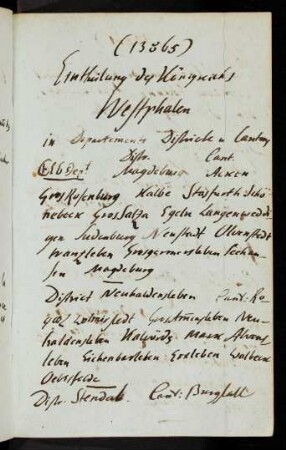 (13865)
Eintheilung des Königreichs
Westphalen
in Departements Districte u Cantons
Distr. Cant.
Elb Dept Magdeburg Acken
Gros Rosenburg Kalbe Stasfurth Schö
nebeck Gros Salza Egeln Langenwedd
gen Sudenburg Neustadt Olvenstedt
Wanzleben Grosgermersleben Seehau
sen Magdeburg
District Neuhaldensleben Cant: Ro
gaz Wolmirstedt Gros Amensleben Neu
haldensleben Calvörde Alvens
leben Eichenbarleben Erxleben Walbeck
Oebisfelde
Distr. Stendal Cant: Burgstall